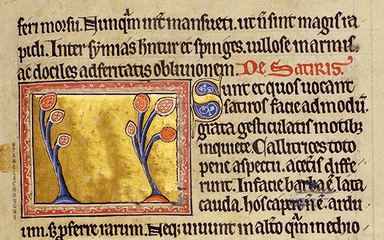 feri morsu. Nunq̃m inṽt mansueti. ut ñ sint magis ra
pidi. Inter s̃imias hñtur et spinges. uillose in armis.
ac dociles ad feritatis obliuionem. De Satiris.
Sunt et quos uocant
satiros facie admodũ.
grata gesticulatis motibꝫ
inquiete. Callitrices toto
pene aspectu a ceteris diffe
runt. In facie barba ẽ. lata
cauda. hos cap̃e ñ ẽ. arduu
um. sꝫ p̱ferre rarum. Neqꝫ uiuunt in alto q̃m in ethio